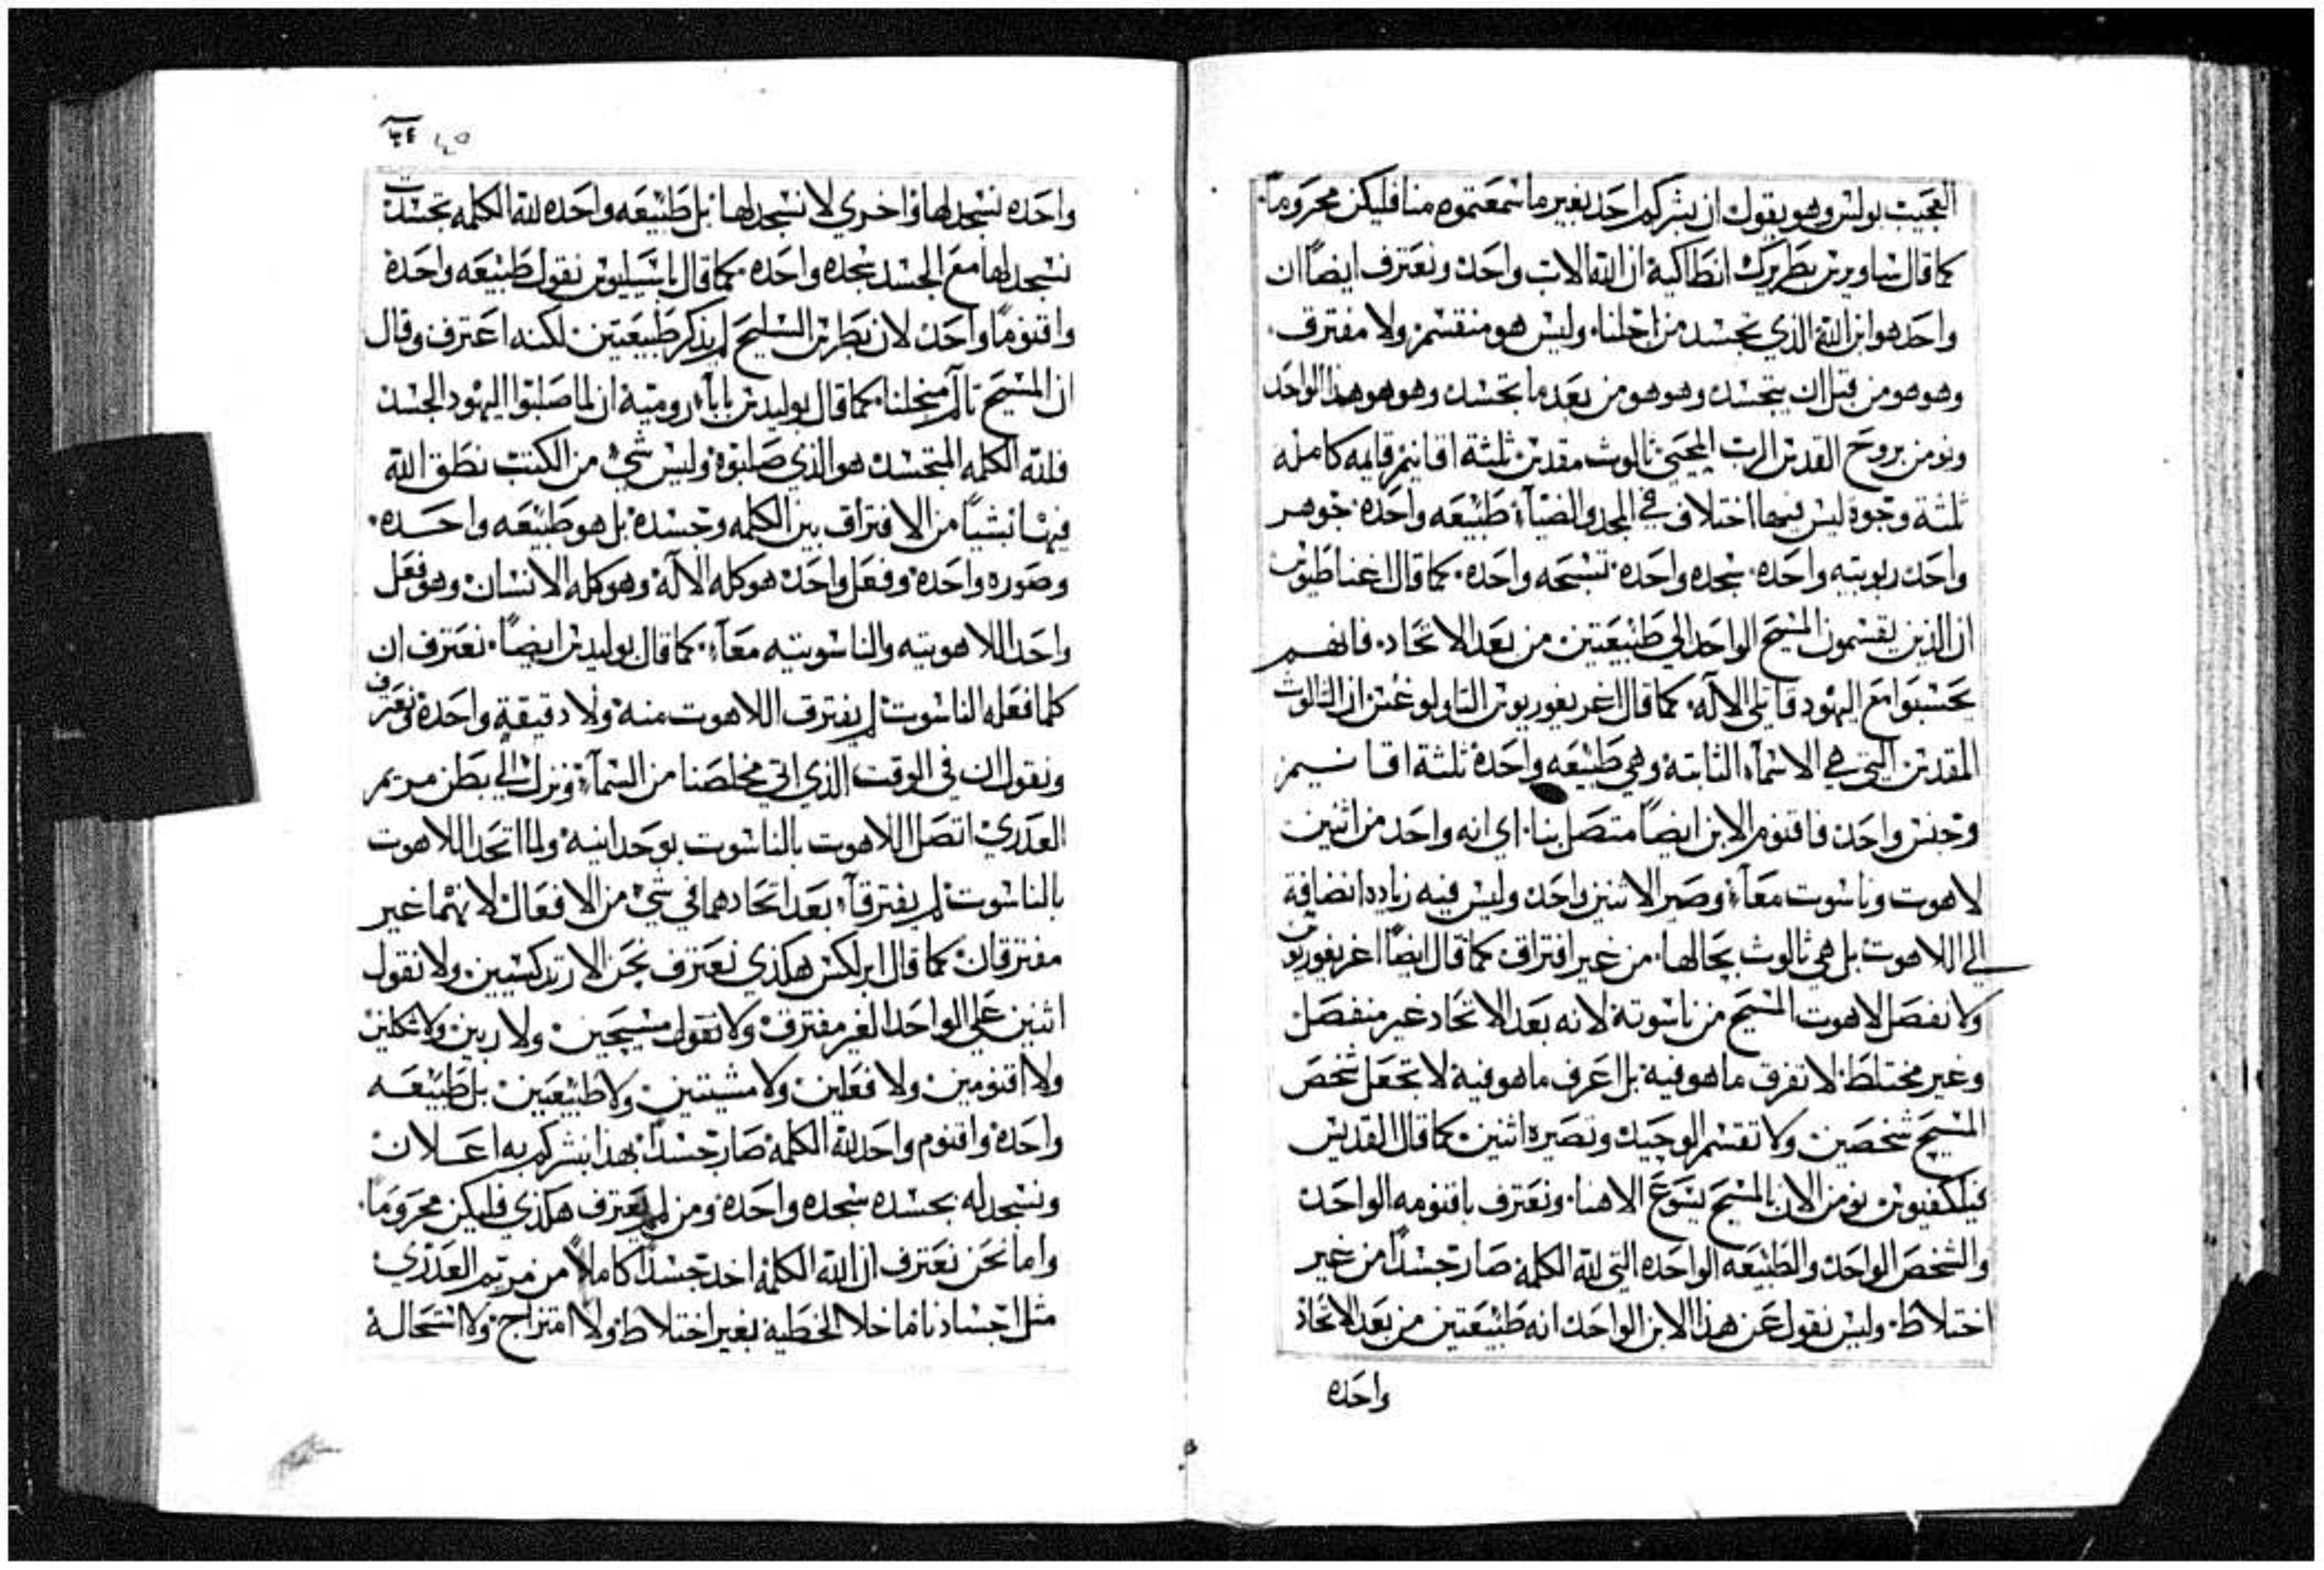 العجيب بولس وهو يقول ان بشركم احد بغير ما سمعتموه منا فليكن محروماً.
كما قال ساويرس بطريرك انطاكية ان الله الاب واحد ونعترف ايضاً ان
واحد هو ابن الله الذي تجسد من اجلنا وليس هو منقسم ولا مفترق.
وهو هو من قبل ان يتجسد وهو هو من بعد ما تجسد وهو هو هذا الواحد
ونومن بروح القدس الرب المحيي ثالوث مقدس ثلثة اقانيم قايمه كامله
ثلثة وجوة ليس فيها اختلاف في المجد والضيآء طبيعه واحدة جوهر
واحد ربوبيته واحدة سجده واحده تسبحه واحدة كما قال اغناطيوس
ان الذين يقسمون المسيح الواحد الي طبيعتين من بعد الاتحاد فانهم
يحسبوا مع اليهود قاتلي الاله كما قال اغريغوريوس التاولوغس ان الثالوث
المقدس التي هي الاسمآء الثابتة وهي طبيعه واحدة ثلثة اقانيم
وجنس واحد فاقنوم الابن ايضاً متصل بنا اي انه واحد من اثنين
لاهوت وناسوت معاً وصير الاثنين واحد وليس فيه زياده انضافة
الي اللاهوت بل هي ثالوث بحالها من غير افتراق كما قال ايضاً اغريغوريوس
ولا نفصل لاهوت المسيح من ناسوتة لانه بعد الاتحاد غير منفصل
وغير مختلط لا تفرق ما هو فية بل اعرف ما هو فية لا تجعل شخص
المسيح شخصين ولا تقسم الوحيد وتصيرة اثنين كما قال القديس
فيلكفيوس نومن الان بالمسيح يسوع الاهنا ونعترف باقنومه الواحد
والشخص الواحد والطبيعه الواحده التي لله الكلمة صار جسداً من غير
اختلاط وليس نقول عن هذا الابن الواحد انه طبيعتين من بعد الاتحاد
واحده
واحده نسجد لها واخري لا نسجد لها بل طبيعه واحده لله الكلمه تجسدت
نسجد لها مع الجسد سجده واحده كما قال باسيليوس نقول طبيعه واحدة
واقنوماً واحد لان بطرس السليح لم يذكر طبيعتين لكنه اعترف وقال
ان المسيح تالم من اجلنا كما قال يوليدس بابآء رومية ان لما صلبوا اليهود الجسد
فلله الكلمه المتجسد هو الذي صلبوة وليس شي من الكتب نطق الله
فيها بشياً من الافتراق بين الكلمه وجسدة بل هو طبيعه واحده.
وصوره واحدة وفعل واحد هو كله الالة وهو كله الانسان وهو فعل
واحد اللاهوتيه والناسوتيه معاً كما قال يوليدس ايضاً نعترف ان
كلما فعله الناسوت لم يفترق اللاهوت منة ولا دقيقة واحدة ونعترف
ونقول ان في الوقت الذي اتي مخلصنا من السمآء ونزل الي بطن مريم
العدري اتصل اللاهوت بالناسوت بوحدانية ولما اتحد اللاهوت
بالناسوت لم يفترقآ بعد اتحادهما في شي من الافعال لانهما غير
مفترقان كما قال ابركس هكذي نعترف نحن الارتدكسيين ولا نقول
اثنين علي الواحد الغير مفترق ولا نقول مسيحين ولا ربين ولا
ولا اقنومين ولا فعلين ولا مشيتين ولا طبيعيين بل طبيعه
واحدة واقنوم واحد لله الكلمة صار جسداً بهذا نبشركم به اعلان
ونسجد له بجسده سجده واحدة ومن لم يعترف هكذي فليكن محروماً.
واما نحن نعترف ان الله الكلمة اخد جسداً كاملاً من مريم العدري
مثل اجسادنا ما خلا الخطية بغير اختلاط ولا امتزاج ولا استحالة